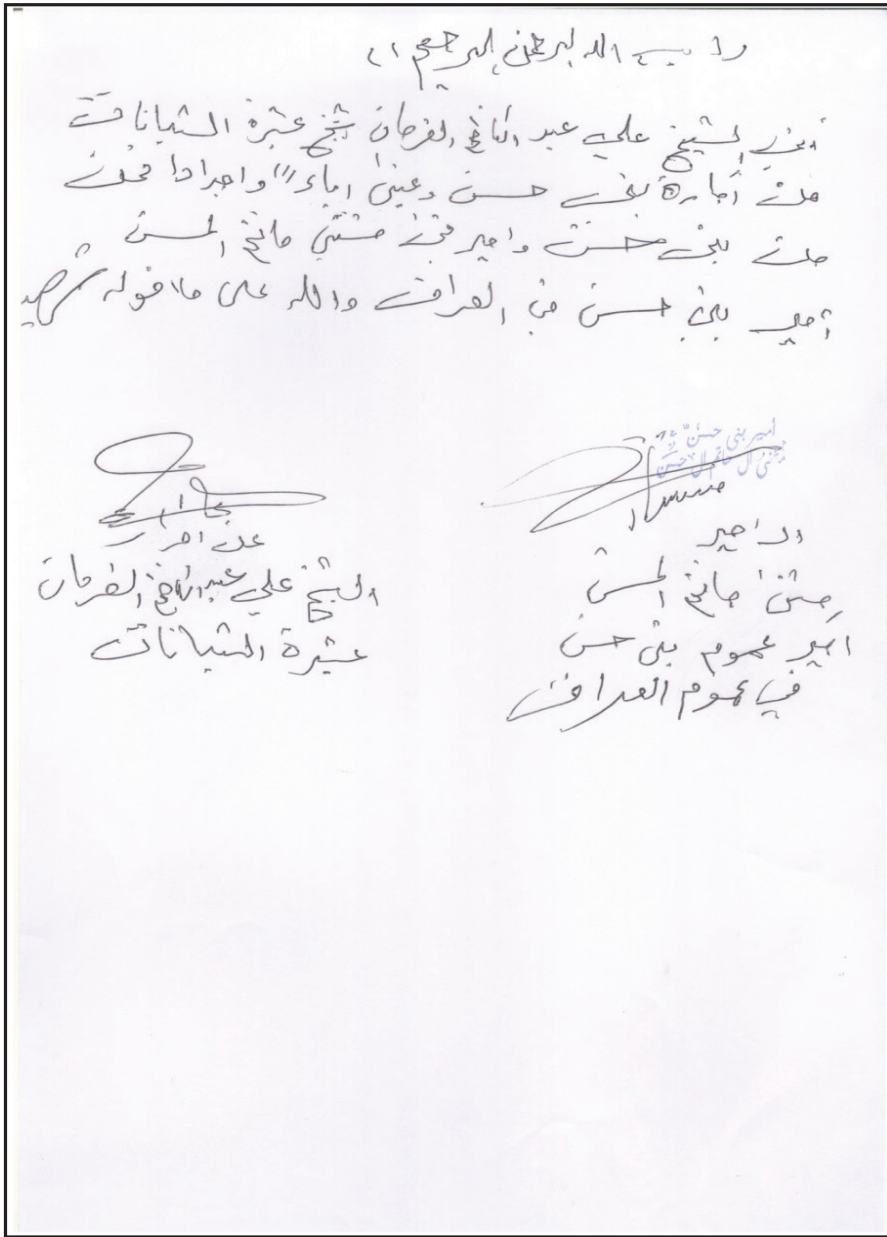 (( بسم الله الرحمن الرحيم ))
أني الشيخ علي عبد الفرحان شيخ عشيرة الشبانات
من أمارة بني حسن اباء" واجدادا فحن
من بني حسن واميرنا مثنى حاتم الحسن
أمير بني حسن في العراق والله على ما اقوله شهيد
أمير بني حسن
مثنى ال حاتم ال حسن
الامير
مثنى حاتم الحسن
امير عموم بني حسن
في عموم العراق
الشيخ علي الفرحان
عشيرة الشبانات